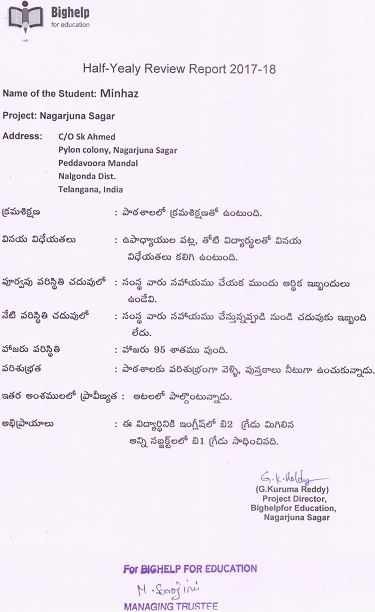 Bighelp
for education
Half-Yealy Review Report 2017-18
Name of the Student: Minhaz
Project: Nagarjuna Sagar
Address: C/O Sk Ahmed
Pylon colony, Nagarjuna Sagar
Peddavoora Mandal
Nalgonda Dist.
Telangana, India
క్రమశిక్షణ : పాఠశాలలో క్రమశిక్షణతో ఉంటుంది.
వినయ విధేయతలు : ఉపాధ్యాయుల వట్ల, తోటి విద్యార్థులతో వినయ
విధేయతలు కలిగి ఉంటుంది.
పూర్వపు పరిస్థితి చదువులో : సంస్థ వారు సహాయము చేయక ముందు ఆర్థిక ఇబ్బందులు
ఉండేవి.
నేటి పరిస్థితి చదువులో : సంస్థ వారు సహాయము చేస్తున్నవ్పటి నుండి చదువుకు ఇబ్బంది
లేదు.
హాజరు పరిస్థితి : హాజరు 95 శాతము వుంది.
పరిశుభ్రత : పాఠశాలకు పరిశుభ్రంగా వెళ్ళి, పుస్తకాలు నీటుగా ఉంచుకున్నాడు.
ఇతర అంశములలో ప్రావీణ్యత : ఆటలలో పాల్గొంటున్నాడు.
అభిప్రాయాలు : ఈ విద్యార్థినికి ఇంగ్లీష్‌లో బి2 గ్రేడు మిగిలిన
అన్ని సబ్జెక్ట్‌లలో బి1 గ్రేడు సాధించినది.
G.K.Reddy
(G.Kuruma Reddy)
Project Director,
Bighelpfor Education,
Nagarjuna Sagar
For BIGHELP FOR EDUCATION
M. Sarojini
MANAGING TRUSTEE